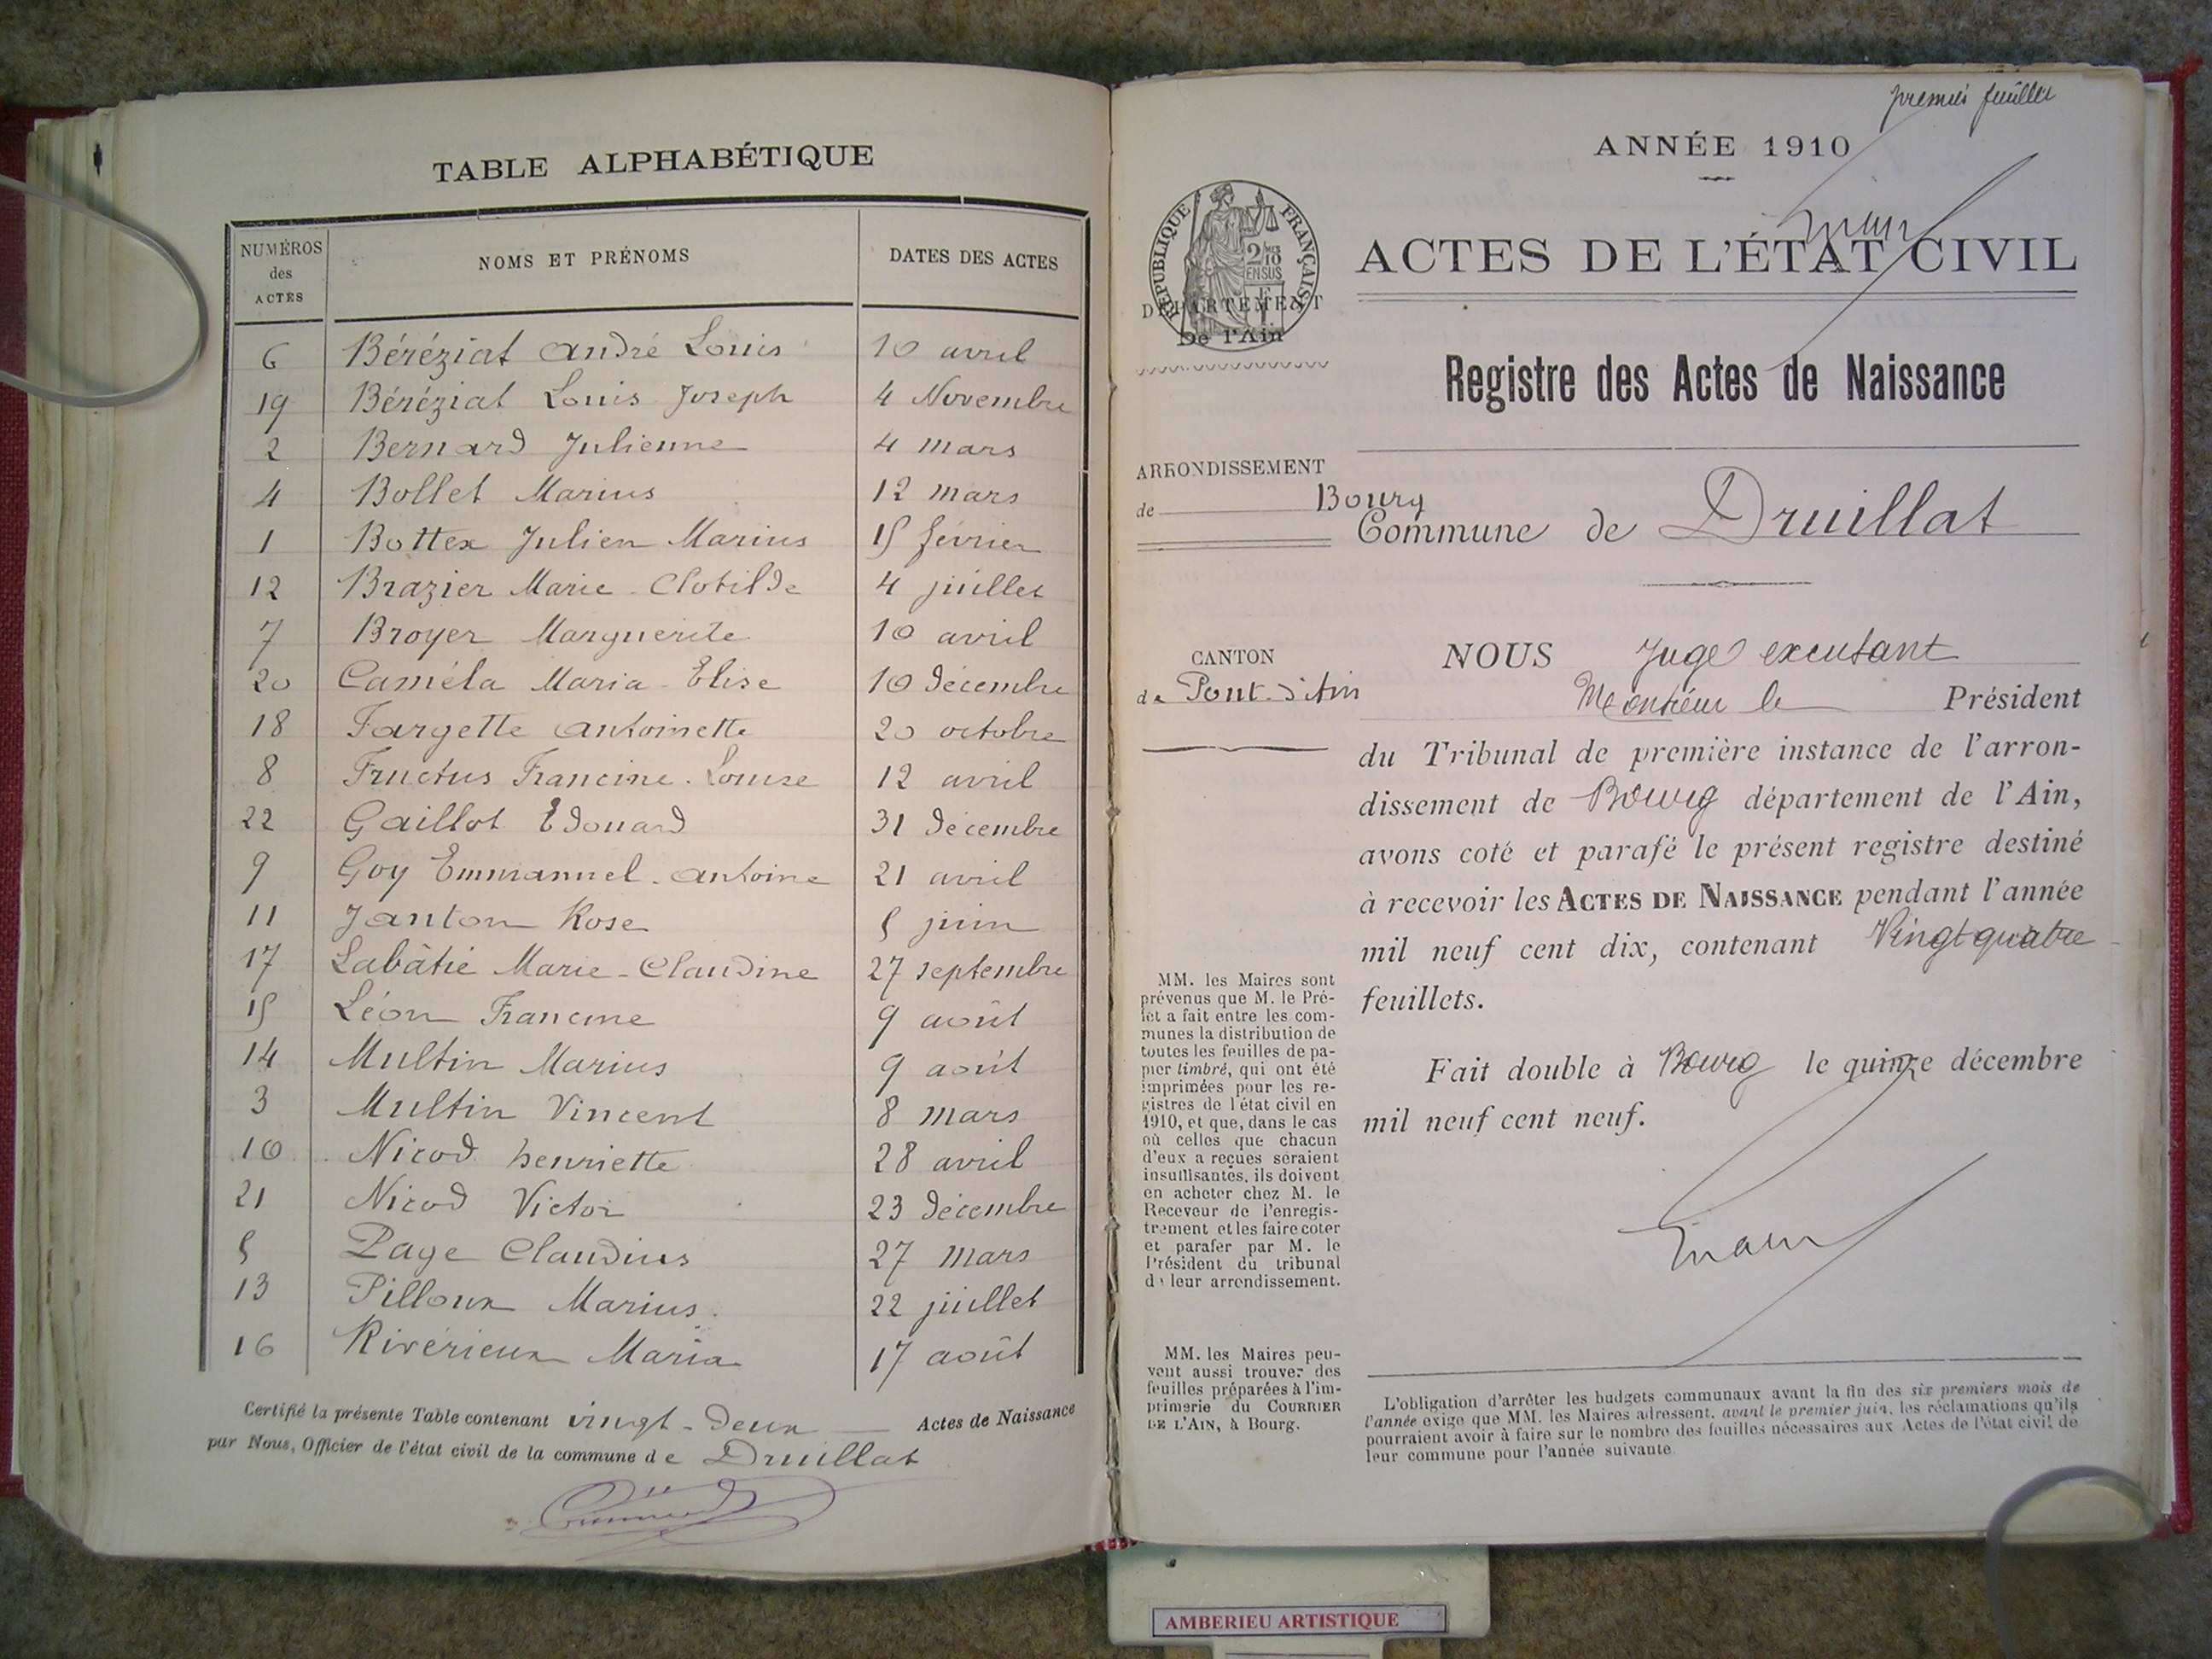 TABLE ALPHABÉTIQUE
NUMÉROS des ACTES NOMS ET PRÉNOMS DATES DES ACTES
6 Béréziat André Louis 10 avril
19 Béréziat Louis Joseph 4 Novembre
2 Bernard Julienne 4 mars
4 Bollet Marius 12 mars
1 Bottex Julien Marius 15 février
12 Brazier Marie-Clotilde 4 juillet
7 Broyer Marguerite 10 avril
20 Caméla Maria-Elise 10 décembre
18 Fargette Antoinette 20 octobre
8 Fructus Francine-Louise 12 avril
22 Gaillot Edouard 31 décembre
9 Goy Emmanuel-Antoine 21 avril
11 Janton Rose 5 juin
17 Labâtie Marie-Claudine 27 septembre
15 Léon Francine 9 août
14 Multin Marius 9 août
3 Multin Vincent 8 mars
10 Nicod henriette 28 avril
21 Nicod Victor 23 décembre
5 Page Claudius 27 mars
13 Pilloux Marius 22 juillet
16 Rivérieux Maria 17 août
Certifié la présente Table contenant vingt-deux Actes de Naissance
par Nous, Officier de l'état civil de la commune de Druillat
premier feuillet
ANNÉE 1910
RÉPUBLIQUE FRANÇAISE
2/10 EN SUS
DÉPARTEMENT
De l'Ain
ACTES DE L'ÉTAT CIVIL
Registre des Actes de Naissance
ARRONDISSEMENT
de Bourg
Commune de Druillat
CANTON
de Pont-d'Ain
NOUS Juge
Monsieur le Président
du Tribunal de première instance de l'arron-
dissement de Bourg département de l'Ain,
avons coté et parafé le présent registre destiné
à recevoir les ACTES DE NAISSANCE pendant l'année
mil neuf cent dix, contenant Vingt quatre
feuillets.
Fait double à Bourg le quinze décembre
mil neuf cent neuf.
MM. les Maires sont
prévenus que M. le Pré-
fet a fait entre les com-
munes la distribution de
toutes les feuilles de pa-
pier timbré, qui ont été
imprimées pour les re-
gistres de l'état civil en
1910, et que, dans le cas
où celles que chacun
d'eux a reçues seraient
insuffisantes, ils doivent
en acheter chez M. le
Receveur de l'enregis-
trement et les faire coter
et parafer par M. le
Président du tribunal
de leur arrondissement.
MM. les Maires peu-
vent aussi trouver des
feuilles préparées à l'im-
primerie du COURRIER
DE L'AIN, à Bourg.
L'obligation d'arrêter les budgets communaux avant la fin des six premiers mois de
l'année exige que MM. les Maires adressent, avant le premier juin, les réclamations qu'ils
pourraient avoir à faire sur le nombre des feuilles nécessaires aux Actes de l'état civil de
leur commune pour l'année suivante
AMBERIEU ARTISTIQUE